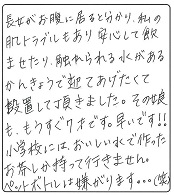 長女がお腹に居ると分かり、私の
肌トラブルもあり安心して飲
ませたり、触れられる水がある
かんきょうで迎てあげたくて
設置して頂きました。その娘
も、もうすぐ7才です。早いです!!
小学校には、おいしい水で作った
お茶しか持って行きません。
ペットボトルは嫌がります…(笑)